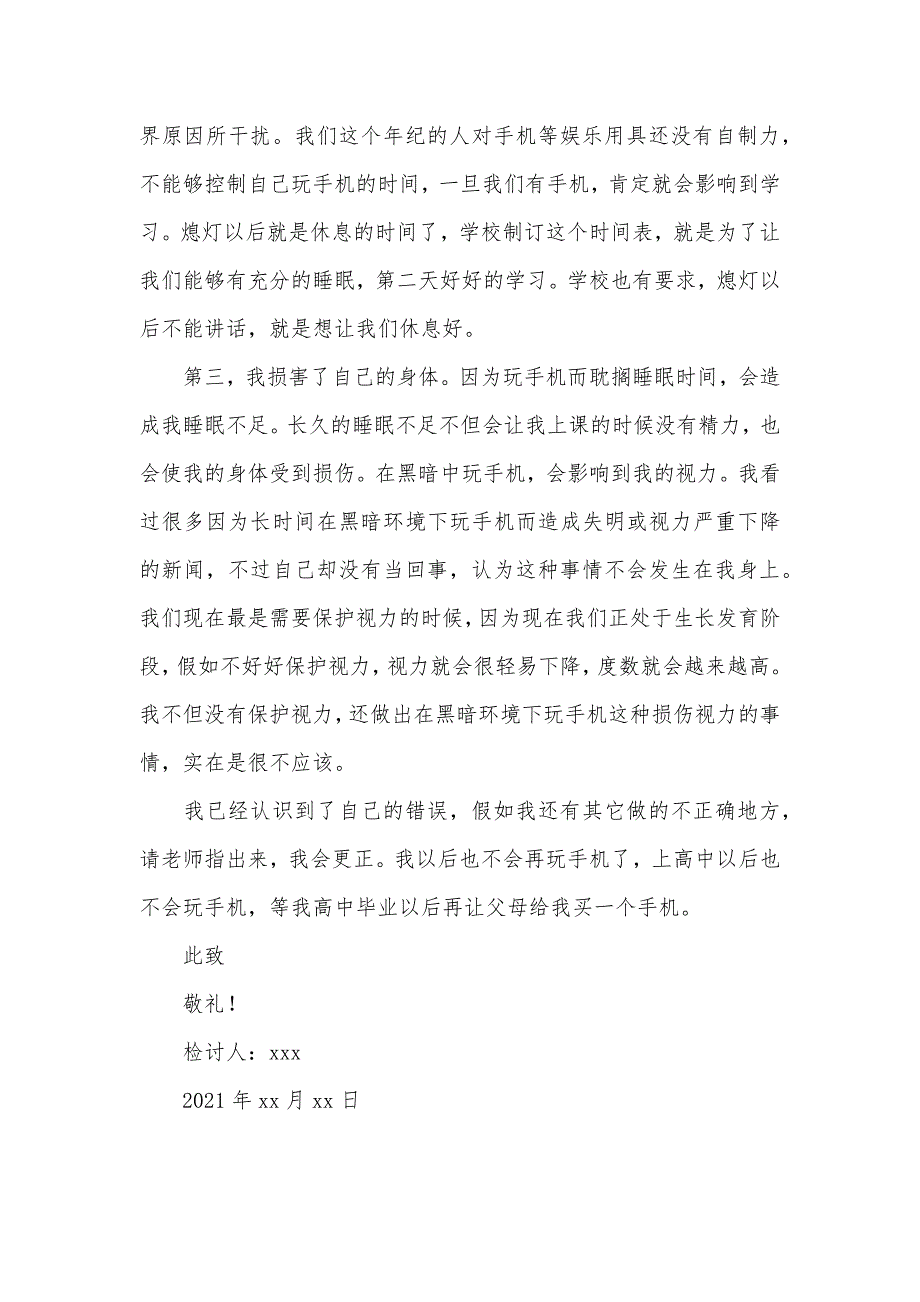 界原因所干扰。我们这个年纪的人对手机等娱乐用具还没有自制力，
不能够控制自己玩手机的时间，一旦我们有手机，肯定就会影响到学
习。熄灯以后就是休息的时间了，学校制订这个时间表，就是为了让
我们能够有充分的睡眠，第二天好好的学习。学校也有要求，熄灯以
后不能讲话，就是想让我们休息好。
第三，我损害了自己的身体。因为玩手机而耽搁睡眠时间，会造
成我睡眠不足。长久的睡眠不足不但会让我上课的时候没有精力，也
会使我的身体受到损伤。在黑暗中玩手机，会影响到我的视力。我看
过很多因为长时间在黑暗环境下玩手机而造成失明或视力严重下降
的新闻，不过自己却没有当回事，认为这种事情不会发生在我身上。
我们现在最是需要保护视力的时候，因为现在我们正处于生长发育阶
段，假如不好好保护视力，视力就会很轻易下降，度数就会越来越高。
我不但没有保护视力，还做出在黑暗环境下玩手机这种损伤视力的事
情，实在是很不应该。
我已经认识到了自己的错误，假如我还有其它做的不正确地方，
请老师指出来，我会更正。我以后也不会再玩手机了，上高中以后也
不会玩手机，等我高中毕业以后再让父母给我买一个手机。
此致
敬礼！
检讨人：xxx
2021 年 xx 月 xx 日